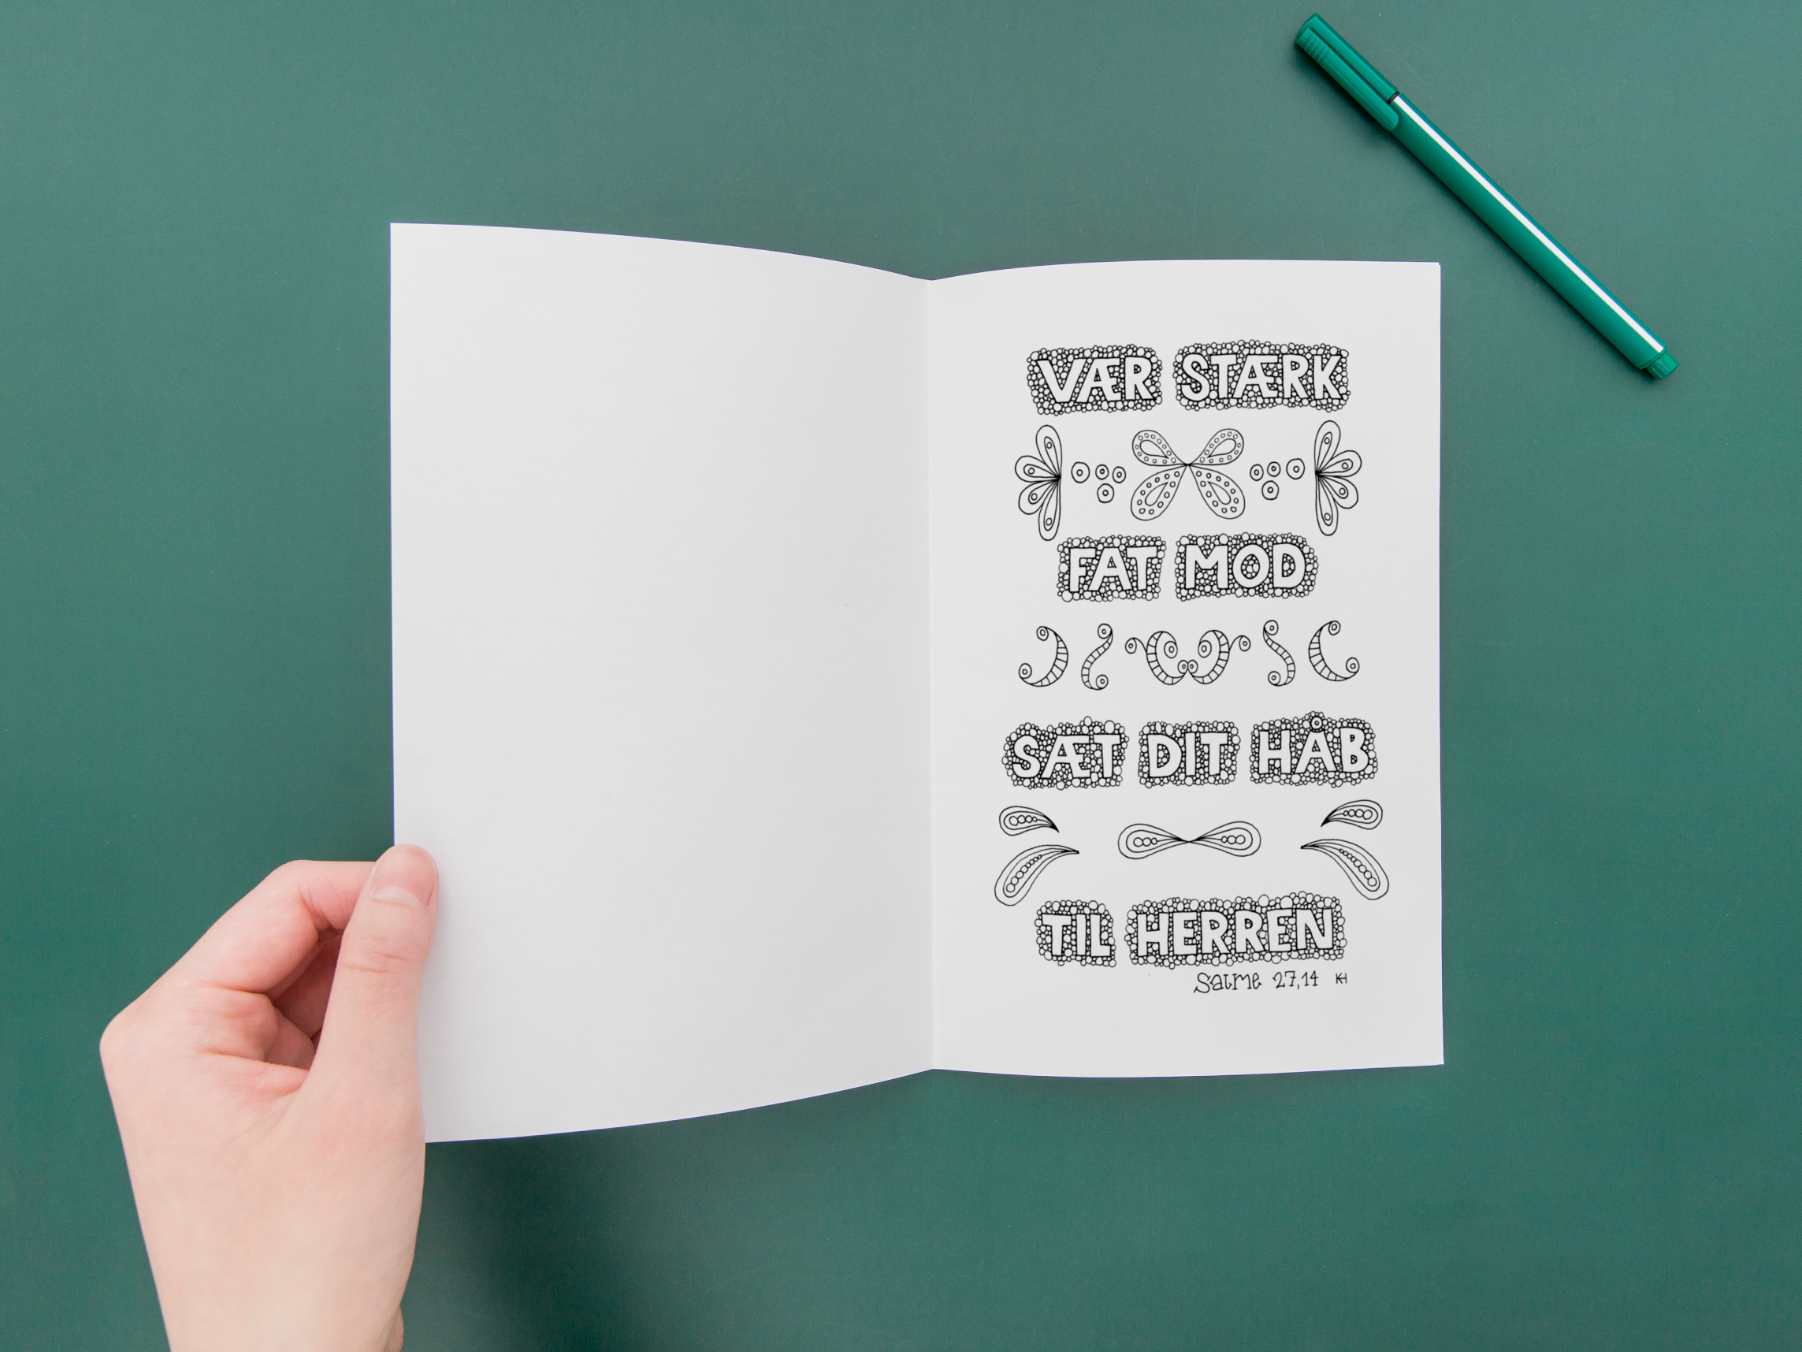 VÆR STÆRK
FAT MOD
SÆT DIT HÅB
TIL HERREN
Salme 27,14 KH